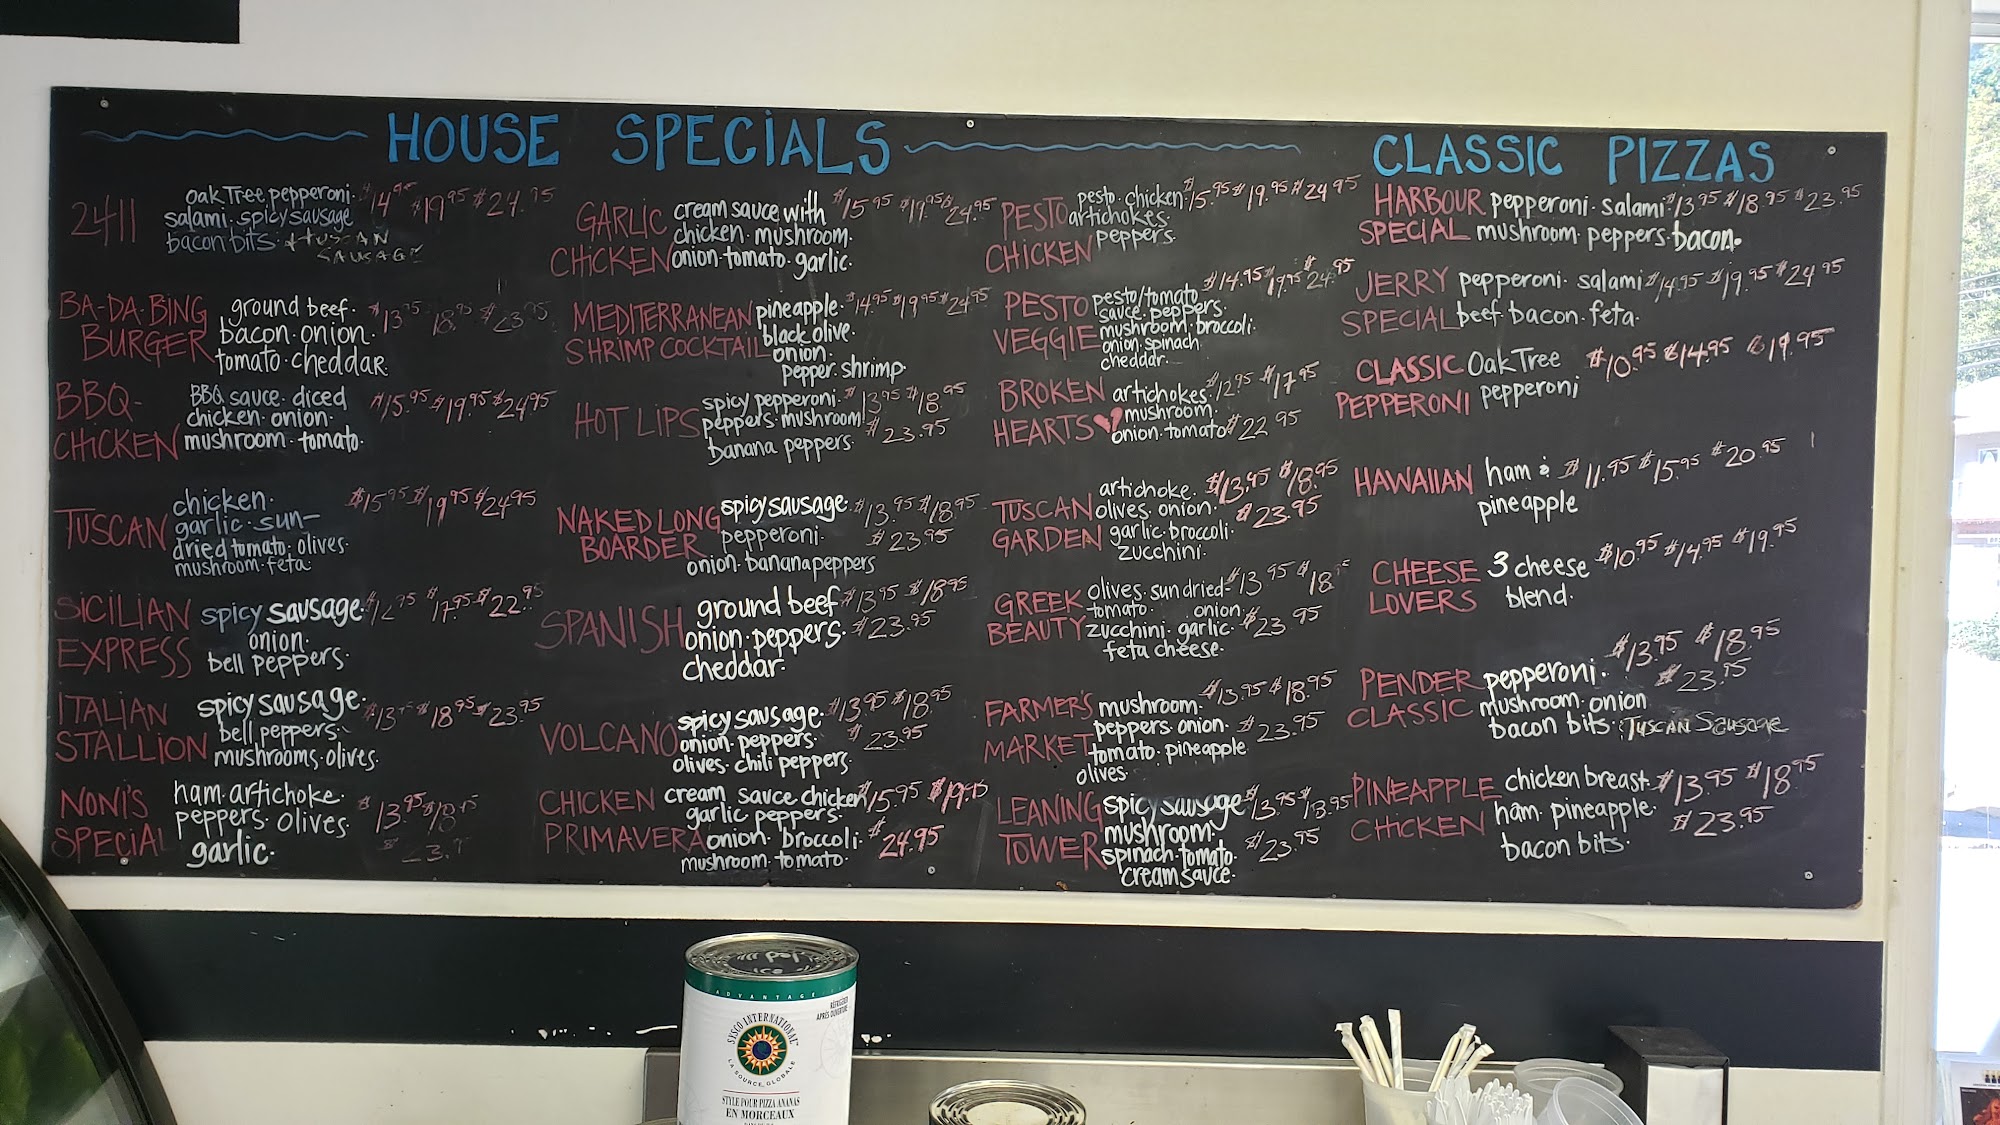 HOUSE SPECIALS
2411 oak Tree pepperoni. $14.95 $19.95 $24.95
salami. spicy sausage
bacon bits. + TUSCAN
SAUSAGE
BA-DA-BING ground beef. $13.95 18.95 $23.95
BURGER bacon. onion.
tomato. cheddar.
BBQ- BBQ sauce. diced $15.95 $19.95 $24.95
CHICKEN chicken. onion.
mushroom. tomato.
TUSCAN chicken. $15.95 $19.95 $24.95
garlic. sun-
dried tomato. olives.
mushroom. feta
SICILIAN spicy sausage. $12.95 $17.95 $22.95
EXPRESS onion.
bell peppers.
ITALIAN spicy sausage. $13.95 $18.95 $23.95
STALLION bell peppers.
mushrooms. olives.
NONI'S ham. artichoke. $13.95 $18.95
SPECIAL peppers. olives. $23.9
garlic.
GARLIC cream sauce with $15.95 $19.95 $24.95
CHICKEN chicken. mushroom.
onion. tomato. garlic.
MEDITERRANEAN pineapple. $14.95 $19.95 $24.95
SHRIMP COCKTAIL black olive.
onion.
pepper. shrimp.
HOT LIPS spicy pepperoni. $13.95 $18.95
peppers. mushroom $23.95
banana peppers.
NAKED LONG spicy sausage. $13.95 $18.95
BOARDER pepperoni. $23.95
onion. banana peppers
SPANISH ground beef $13.95 $18.95
onion. peppers. $23.95
cheddar.
VOLCANO spicy sausage. $13.95 $18.95
onion. peppers. $23.95
olives. chili peppers.
CHICKEN cream sauce chicken $15.95 $19.95
PRIMAVERA garlic peppers.
onion. broccoli. $24.95
mushroom. tomato.
PESTO pesto. chicken. $15.95 $19.95 $24.95
CHICKEN artichokes.
peppers.
PESTO pesto/tomato $14.95 $19.95 $24.95
VEGGIE sauce. peppers.
mushroom. broccoli.
onion. spinach
cheddar.
BROKEN artichokes. $12.95 $17.95
HEARTS mushroom.
onion. tomato $22.95
TUSCAN artichoke. $13.95 $18.95
GARDEN olives. onion. $23.95
garlic. broccoli.
zucchini.
GREEK olives. sundried- $13.95 $18.95
BEAUTY tomato. onion.
zucchini. garlic. $23.95
feta cheese.
FARMER'S mushroom. $13.95 $18.95
MARKET peppers. onion. $23.95
tomato. pineapple
olives.
LEANING spicy sausage $13.95 $13.95
TOWER mushroom. $23.95
spinach. tomato.
cream sauce.
CLASSIC PIZZAS
HARBOUR pepperoni. salami. $13.95 $18.95 $23.95
SPECIAL mushroom. peppers. bacon.
JERRY pepperoni. salami $14.95 $19.95 $24.95
SPECIAL beef. bacon. feta.
CLASSIC Oak Tree $10.95 $14.95 $19.95
PEPPERONI pepperoni
HAWAIIAN ham & $11.95 $15.95 $20.95
pineapple
CHEESE 3 cheese $10.95 $14.95 $19.95
LOVERS blend.
PENDER pepperoni. $13.95 $18.95
CLASSIC mushroom. onion $23.95
bacon bits. TUSCAN SAUSAGE
PINEAPPLE chicken breast. $13.95 $18.95
CHICKEN ham. pineapple. $23.95
bacon bits.
ADVANTAGE
RÉFRIGÉRER
APRÈS OUVERTURE
SYSCO INTERNATIONAL
LA SOURCE GLOBALE
STYLE POUR PIZZA ANANAS
EN MORCEAUX